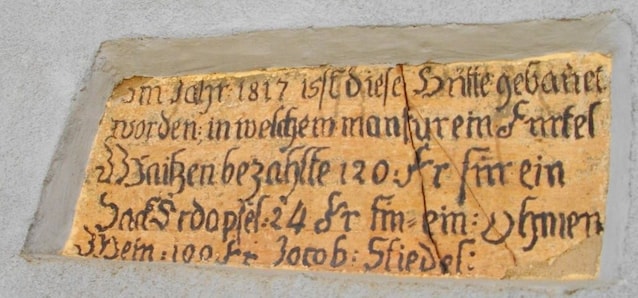 Im Jahr 1817 isst diese Hütte gebauet
worden; in welchem man fur ein Furtel
Waitzen bezahlte 120: Fr für ein
Sack Erdapfel: 24 Fr fur ein: Ohmen
Wein: 100: Fr Jacob: Stiedel: